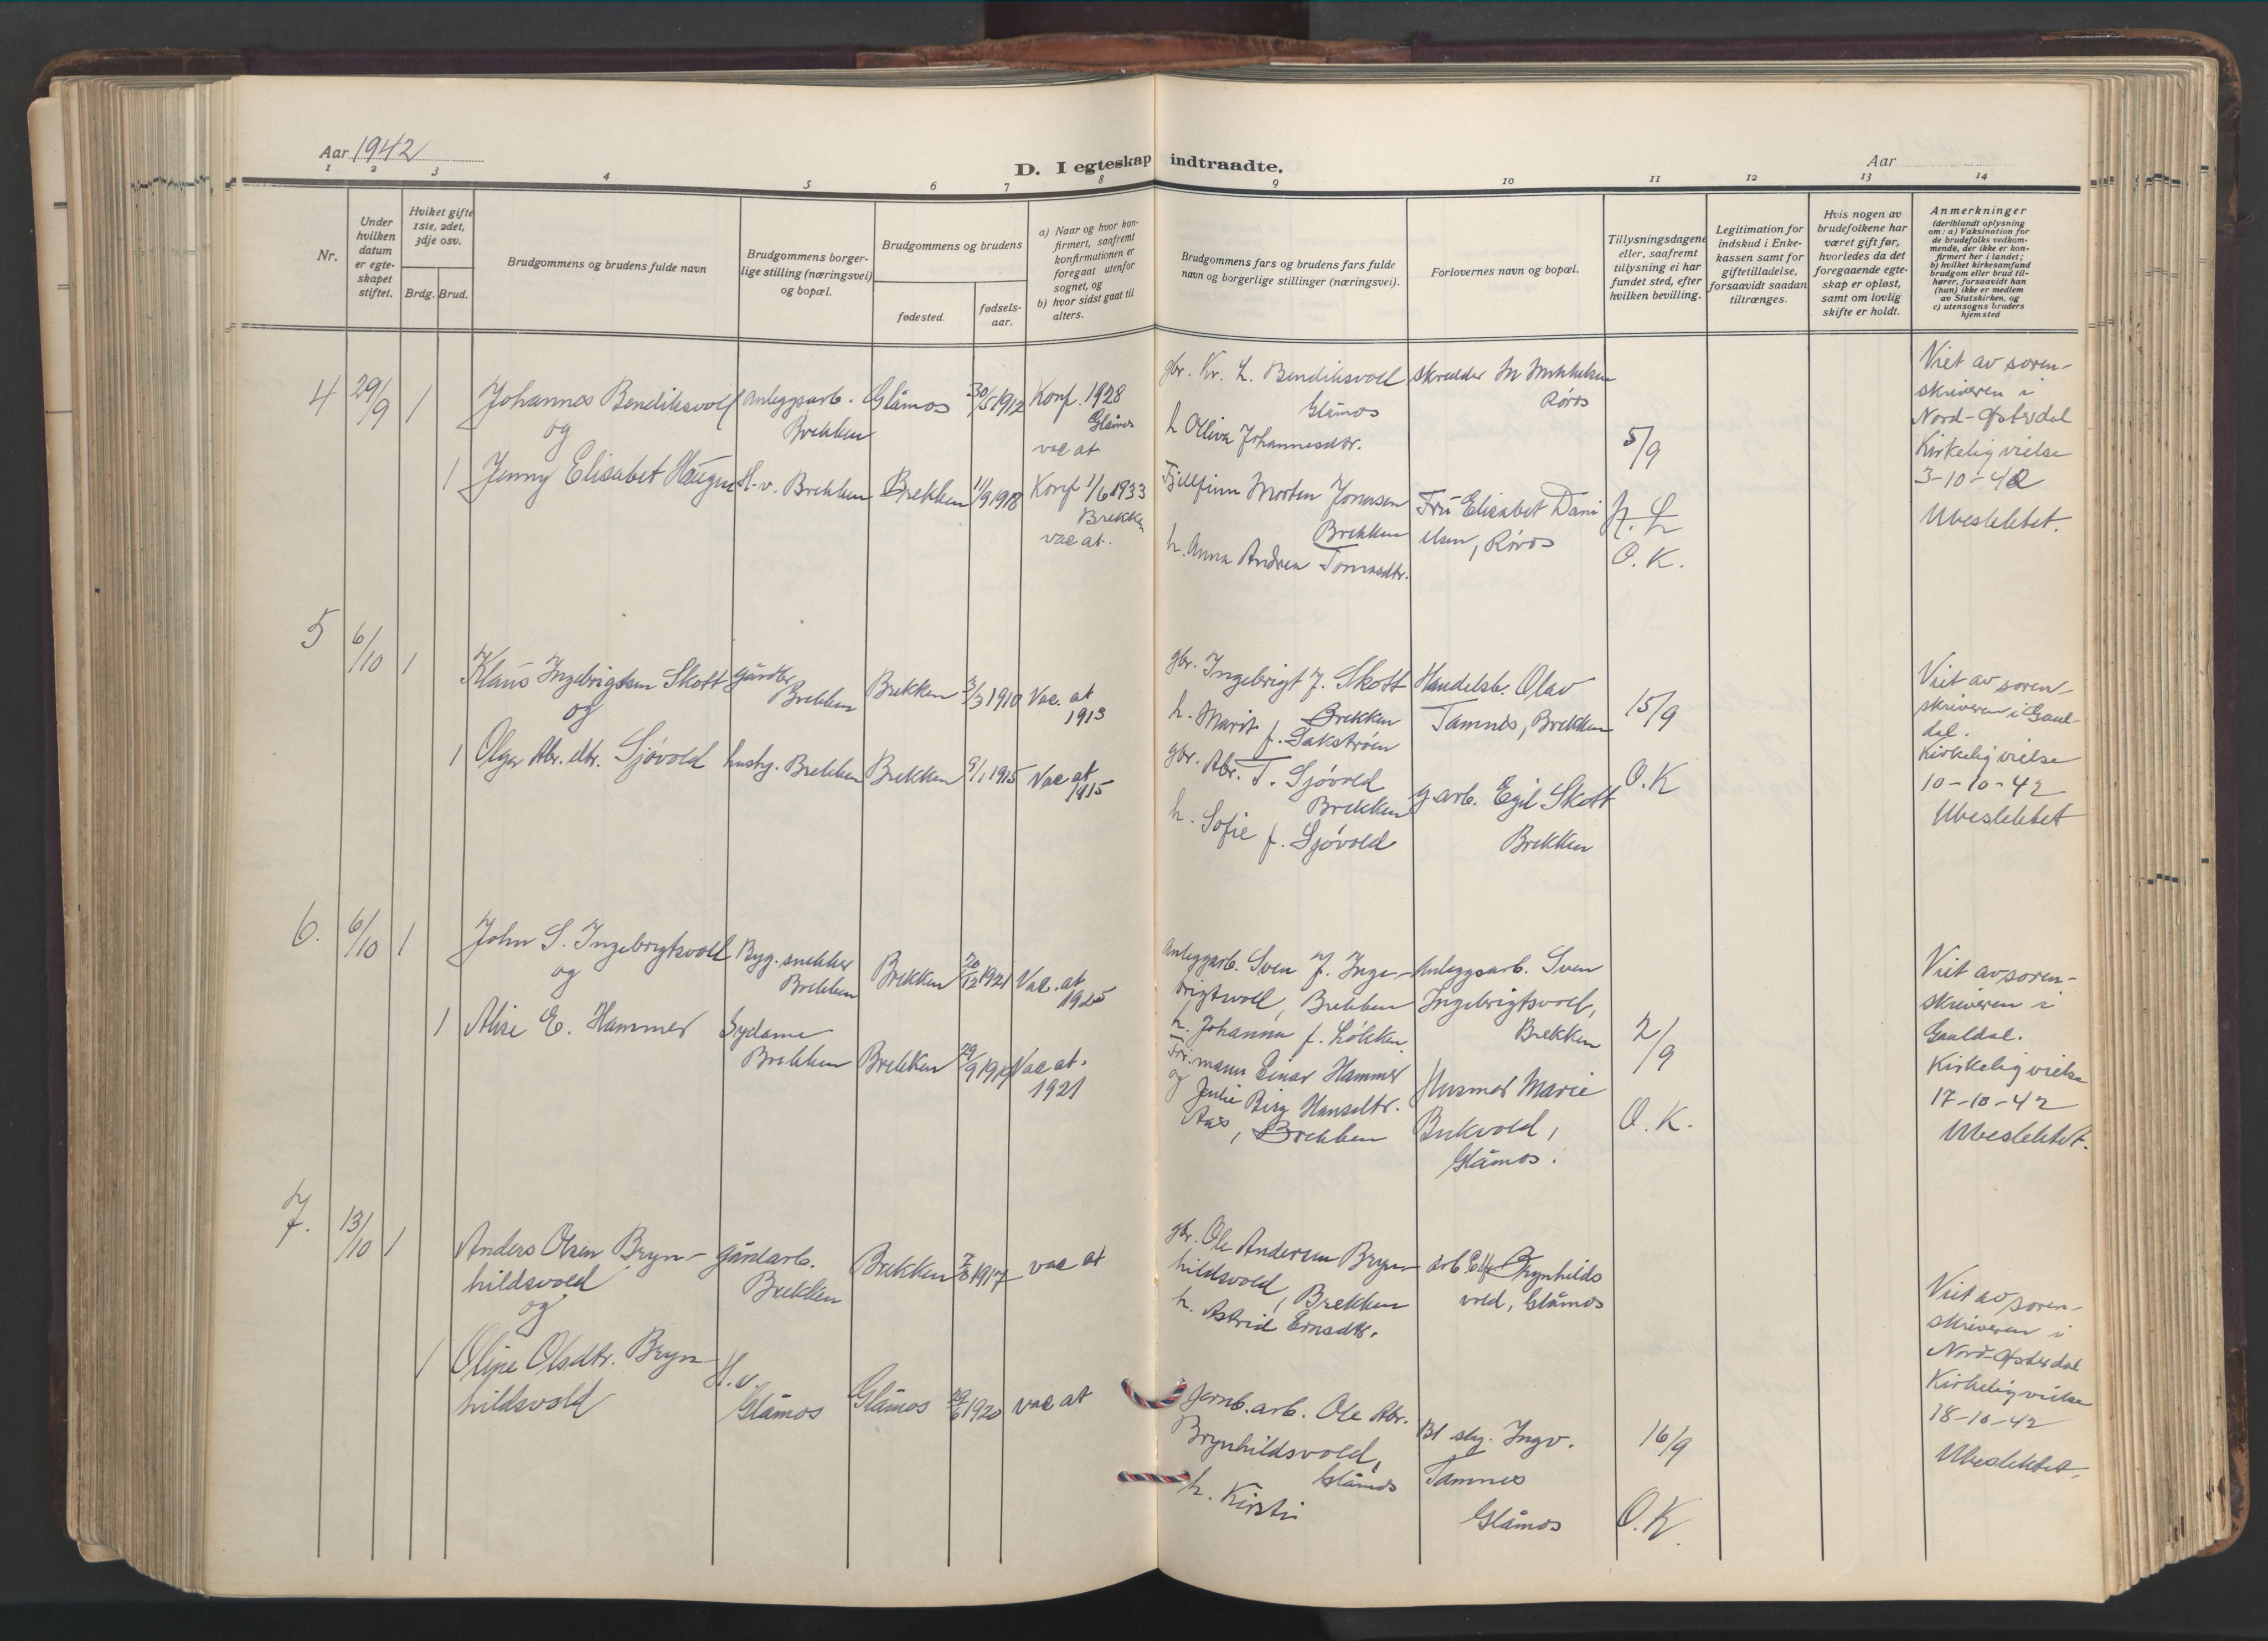 Aar 1942
D. I egteskap indtraadte.
Aar
1 2 3 4 5 6 7 8 9 10 11 12 13 14
Nr.
Under
hvilken
datum
er egte-
skapet
stiftet.
Hviket gifte
1ste, 2det,
3dje osv.
Brdg. Brud.
Brudgommens og brudens fulde navn
Brudgommens borger-
lige stilling (næringsvei)
og bopæl.
Brudgommens og brudens
fødested.
fødsels-
aar.
a) Naar og hvor kon-
firmert, saafremt
konfirmationen er
foregaat utenfor
sognet, og
b) hvor sidst gaat til
alters.
Brudgommens fars og brudens fars fulde
navn og borgerlige stillinger (næringsvei).
Forlovernes navn og bopæl.
Tillysningsdagene
eller, saafremt
tillysning ei har
fundet sted, efter
hvilken bevilling.
Legitimation for
indskud i Enke-
kassen samt for
giftetilladelse,
forsaavidt saadan
tiltrænges.
Hvis nogen av
brudefolkene har
været gift før,
hvorledes da det
foregaaende egte-
skap er opløst,
samt om lovlig
skifte er holdt.
Anmerkninger
(deriblandt oplysning
om: a) Vaksination for
de brudefolks vedkom-
mende, der ikke er kon-
firmert her i landet;
b) hvilket kirkesamfund
brudgom eller brud til-
hører, forsaavidt han
(hun) ikke er medlem
av Statskirken, og
c) utensogns bruders
hjemsted
4
29/9
1
Johannes Bendiksvoll
og
1
Jenny Elisabet Haugen
Anleggsarb.
Brekken
H.v. Brekken
Glåmos
Brekken
30/5 1912
11/9 1918
Konf. 1928
Glåmos
vac at
Konf 1/6 1933
Brekken
vac at.
gbr. Kr. L. Bendiksvoll
Glåmos
h Oliva Johannesdtr.
Fjellfinn Morten Jonassen
Brekken
h. Anna Andrea Tomasdtr.
Skredder M Mikkelsen
Røros
Fru Elisabet Dani
elsen, Røros
5/9
O.K.
Viet av soren-
skriveren i
Nord-Østerdal
Kirkelig vielse
3-10-42
Ubeslektet.
5
6/10
1
Klaus Ingebrigtsen Skott
og
1
Olga Abr. dtr. Sjøvold
gårdbr
Brekken
husby. Brekken
Brekken
Brekken
3/3 1910
9/1 1915
Vac. at
1913
Vac at
1915
gbr. Ingebrigt J. Skott
Brekken
h. Marit f. Sakstrøen
gbr. Abr. T. Sjøvold
Brekken
h. Sofie f. Sjøvold
Handelsb. Olav
Tamnes, Brekken
g.arb. Egil Skott
Brekken
15/9
O.K
Viet av soren-
skriveren i Gaul-
dal.
Kirkelig vielse
10-10-42
Ubeslektet
6.
6/10
1
John S. Ingebrigtsvoll
og
1
Alise E. Hammer
Byg. snekker
Brekken
Sydame
Brekken
Brekken
Brekken
20/12 1921
Vac. at
1925
Vac at.
1921
Anleggarb. Sven J. Inge-
brigtsvoll, Brekken
h. Johanna f. Løkken
mann Einar Hammer
og Julie Birg Hansdtr.
Aas, Brekken
Anleggsarb. Sven
Ingebrigtsvoll,
Brekken
Husmor Marie
Bukvold,
Glåmos.
2/9
O.K.
Viet av soren-
skriveren i
Gauldal.
Kirkelig vielse
17-10-42
Ubeslektet.
7.
13/10
1
Anders Olsen Bryn-
hildsvold
og
1
Oline Olsdtr. Bryn-
hildsvold
gårdarb.
Brekken
H.v.
Glåmos
Brekken
Glåmos
1917
1920
vac at
vac at
gbr. Ole Andersen Bryn-
hildsvold, Brekken
h. Astrid Ernsdtr.
Jernb.arb. Ole Abr.
Brynhildsvold,
Glåmos
h. Kirsti
arb. Brynhilds
vold, Glåmos
Bl sty. Ingv.
Tamnes
Glåmos
16/9
O.K.
Viet av soren-
skriveren i
Nord-Østerdal
Kirkelig vielse
18-10-42
Ubeslektet.